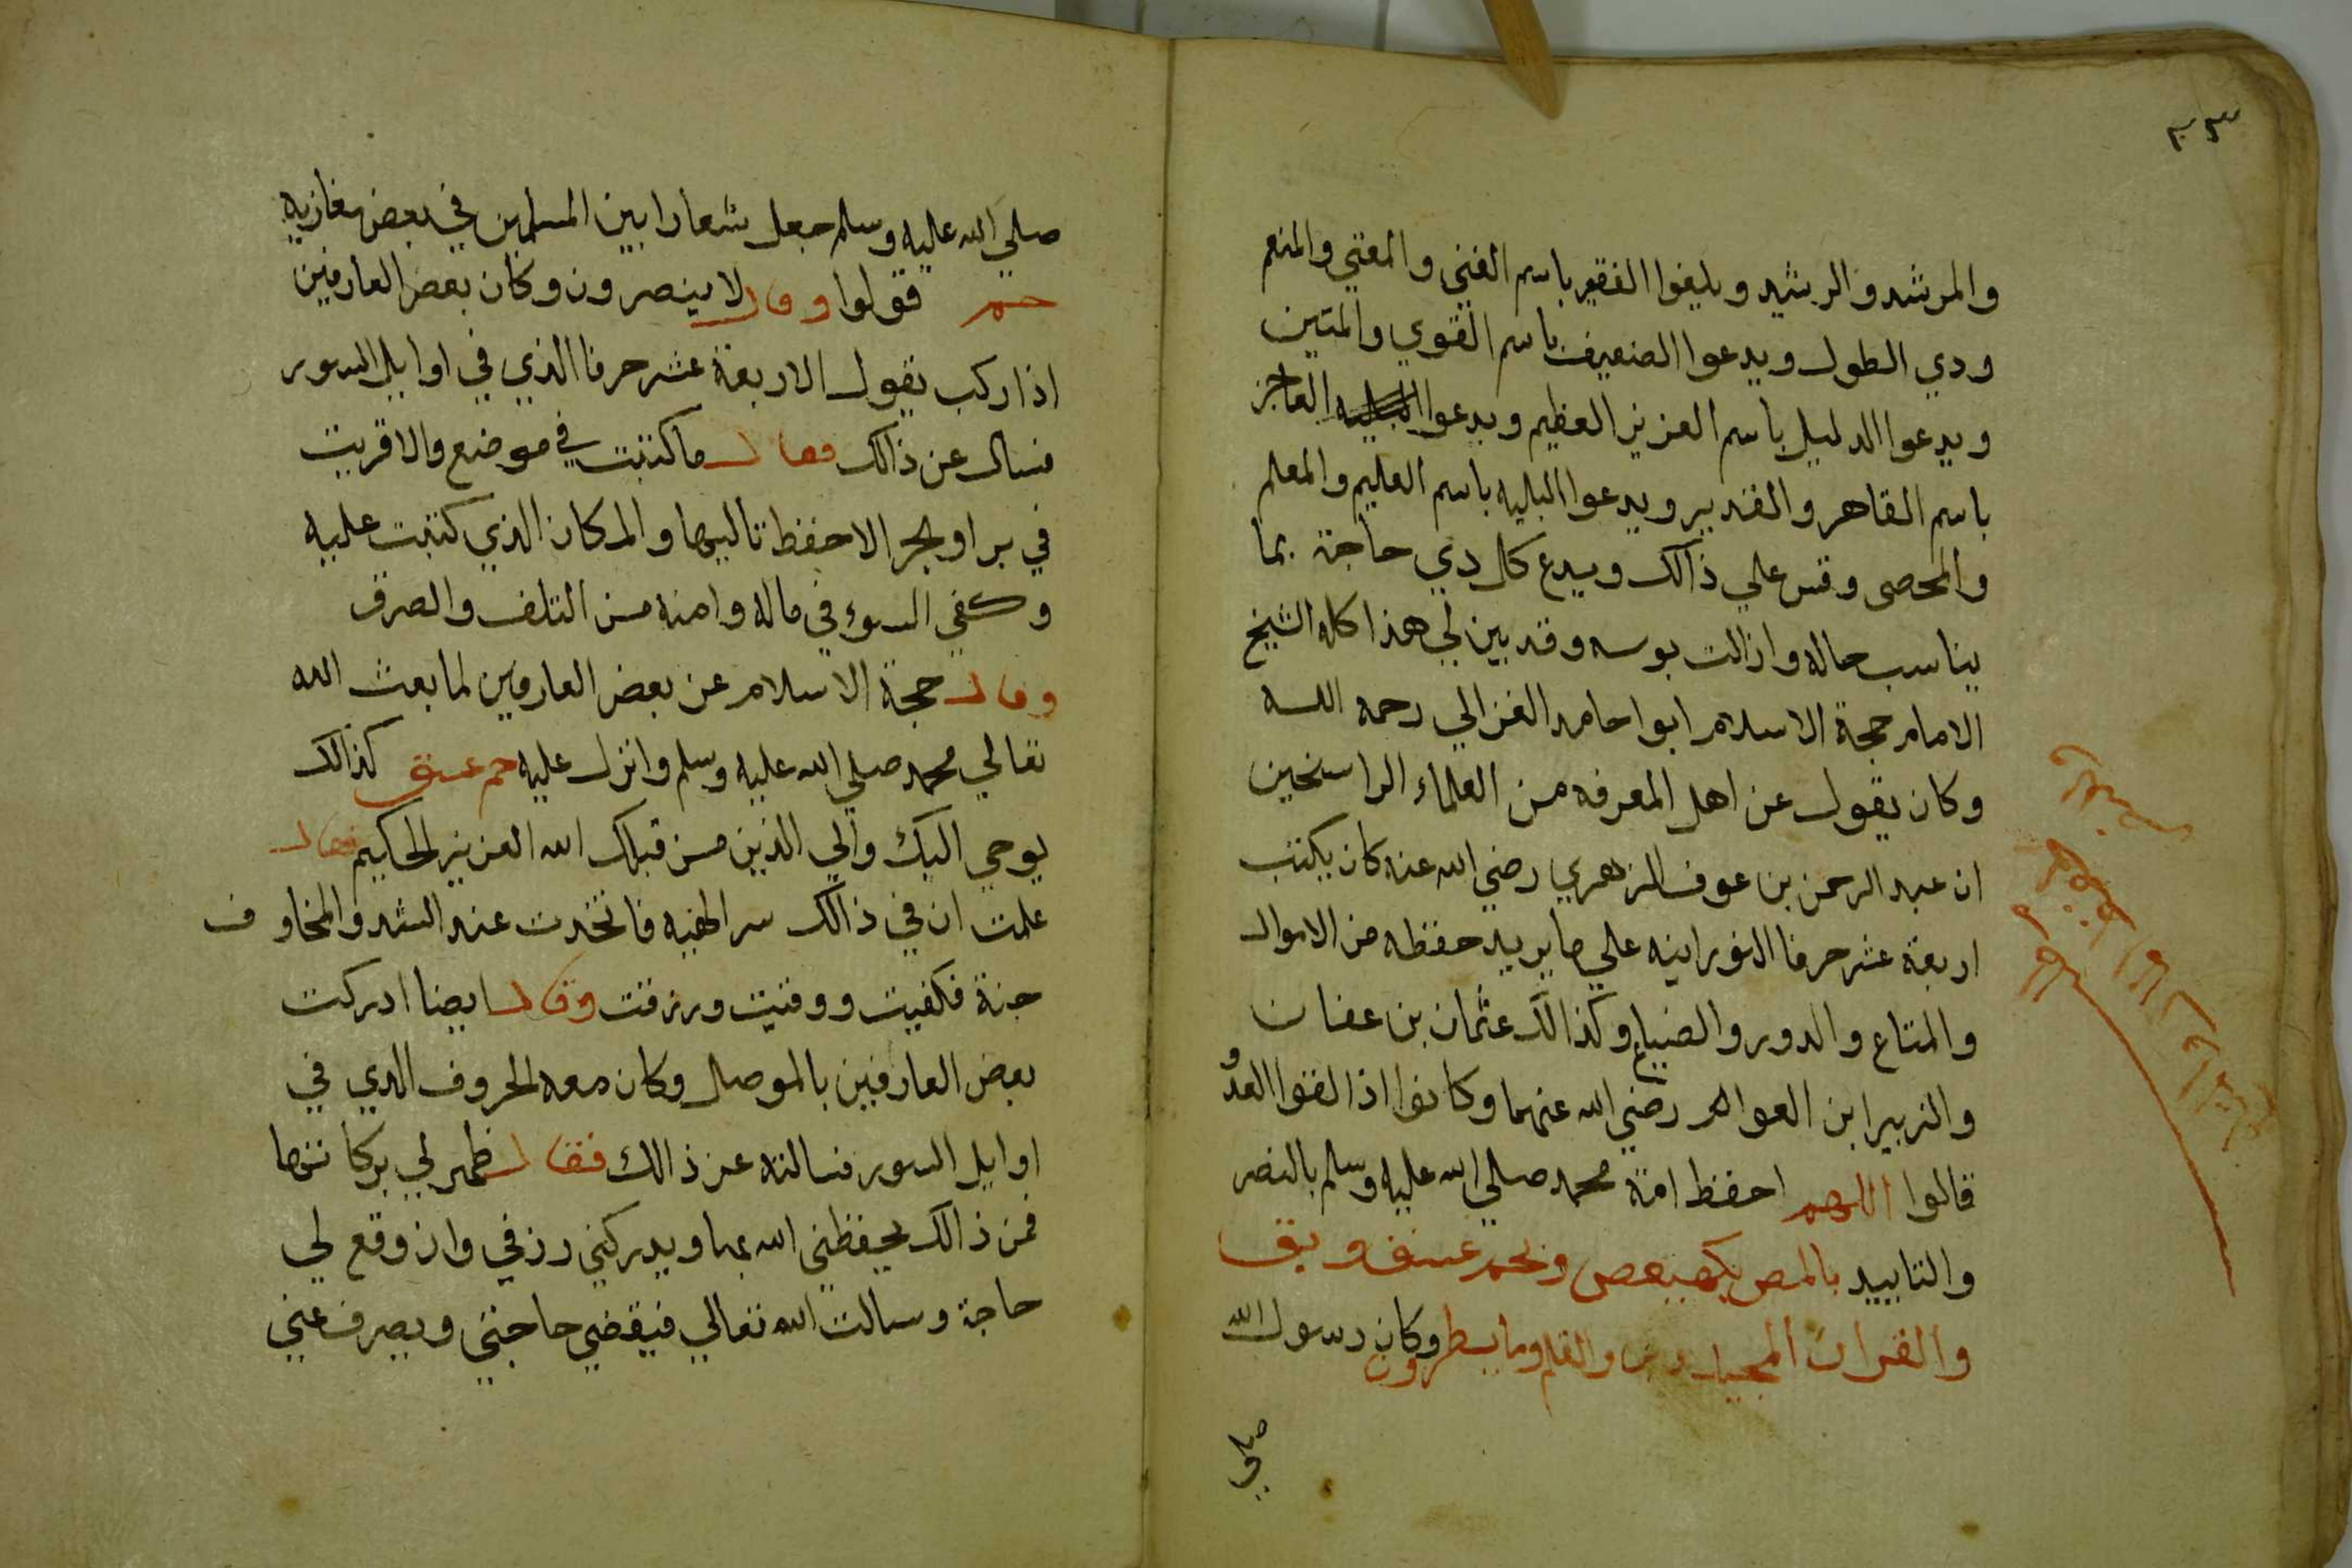 ٣٣
والمرشد والرشيد ويليغوا الفقير باسم الغني والمغني والمنعم
ودي الطول ويدعوا الضعيف باسم القوي والمتين
ويدعوا الدليل باسم العزيز العظيم ويدعوا العاجز
باسم القاهر والقدير ويدعوا البليه باسم العليم والمعلم
والمحصى وقس علي ذالك ويدع كل دي حاجة بما
يناسب حاله وازالت بوسه وقد بين لي هذا كله الشيخ
الامام حجة الاسلام ابوا حامد الغزالي رحمه الله
وكان يقول عن اهل المعرفه من العلماء الراسخين
ان عبد الرحمن بن عوف الزهري رضي الله عنه كان يكتب
اربعة عشر حرفا النورانيه علي ما يريد حفظه من الاموال
والمتاع والدور والضياع وكذالك عثمان بن عفان
والزبير ابن العوام رضي الله عنهما وكانوا اذا لقوا العدو
قالوا اللهم احفظ امة محمد صلي الله عليه وسلم بالنصر
والتاييد بالمص بكهيعص وبحم عسق وبق
والقران المجيد ون والقلم وما يسطرون وكان رسول الله
صلي
صلي الله عليه وسلم جعل شعارا بين المسلمين في بعض مغازيه
حم قولوا وقال لا ينصرون وكان بعض العارفين
اذا ركب يقول الاربعة عشر حرفا الذي في اوايل السور
فسال عن ذالك فقال ما كتبت في موضع والا قريت
في بر او بحر الا حفظ تاليها والمكان الذي كتبت عليه
وكفي السوء في ماله وامنه من التلف والصرق
وقال حجة الاسلام عن بعض العارفين لما بعث الله
تعالي محمد صلي الله عليه وسلم وانزل عليه حم عسق كذالك
يوحي اليك والي الذين من قبلك الله العزيز الحكيم فقال
علمت ان في ذالك سر الهيه فاتخدت عند الشد والمخاوف
جنة فكفيت ووقيت ورزقت وقال ايضا ادركت
بعض العارفين بالموصل وكان معه الحروف الدي في
اوايل السور فسالته عن ذالك فقال ظهر لي بركاتها
فمن ذالك يحفظني الله بها ويدركني رزقي وان وقع لي
حاجة وسالت الله تعالي فيقضي حاجتي ويصرف عني